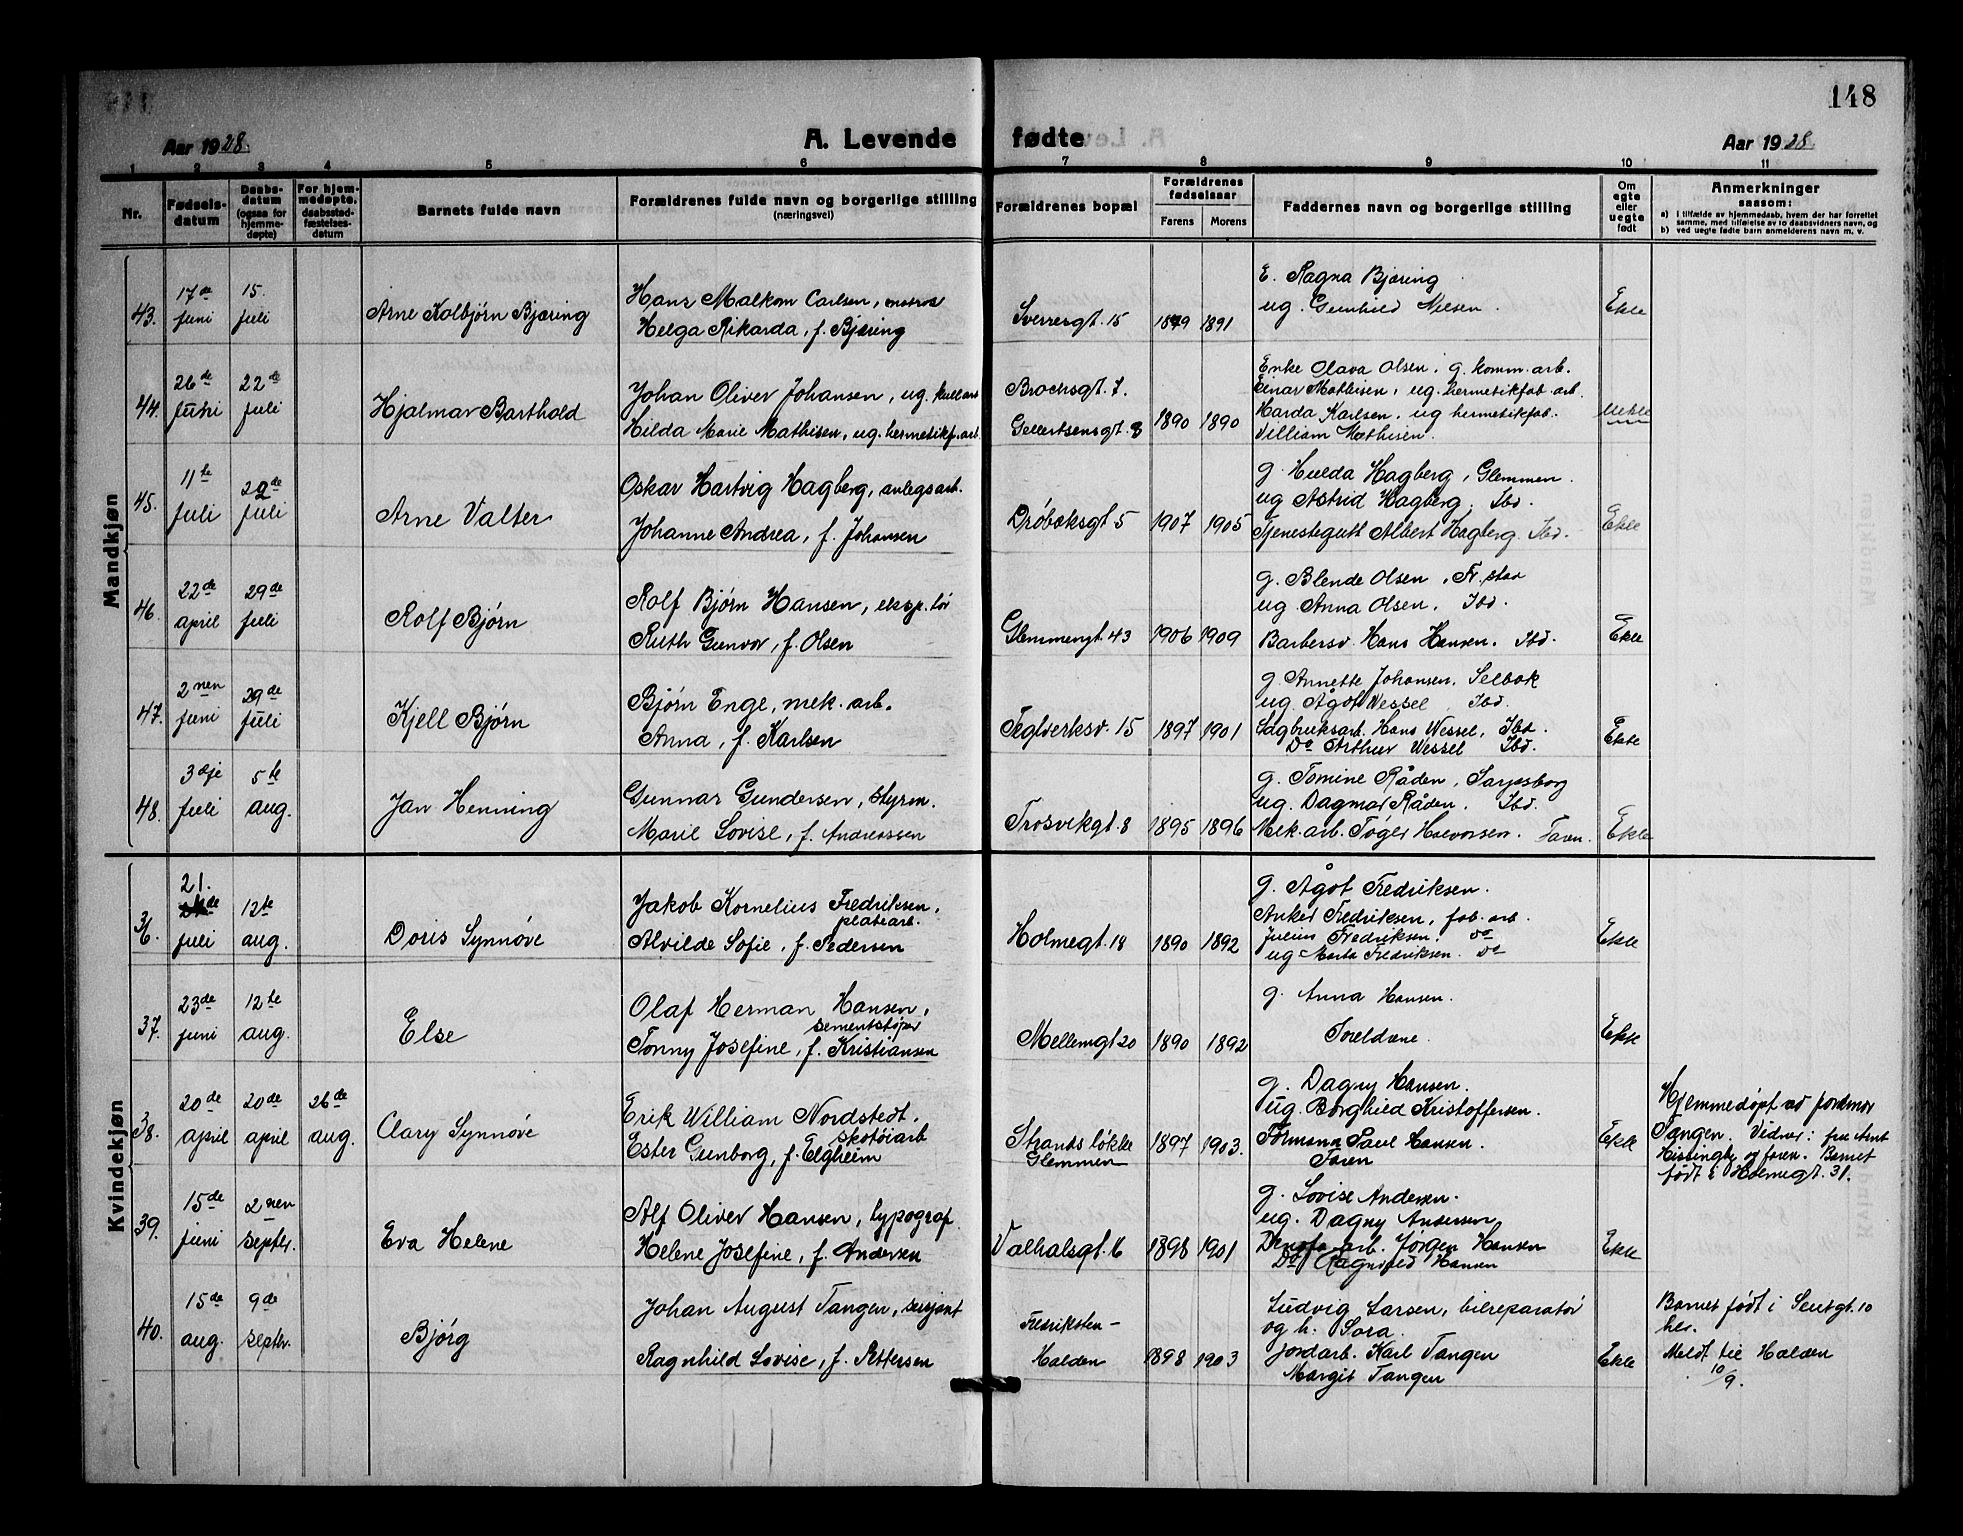 148
Aar 1928. A. Levende fødte Aar 1928.
1 2 3 4 5 6 7 8 9 10 11
Nr. Fødselsdatum Daabsdatum (ogsaa for hjemmedøpte) For hjemmedøpte, daabsstadfæstelsesdatum Barnets fulde navn Forældrenes fulde navn og borgerlige stilling (næringsvei) Forældrenes bopæl Forældrenes fødselsaar Farens Morens Faddernes navn og borgerlige stilling Om egte eller uegte født Anmerkninger saasom:
a) i tilfælde av hjemmedaab, hvem der har forrettet samme, med tilføielse av to daabsvidners navn, og
b) ved uegte fødte barn anmelderens navn m. v.
Mandkjøn
43. 17de juni 15. juli Arne Kolbjørn Bjæring
Hans Malkom Carlsen, matros
Helga Rikarda, f. Bjæring
Sverresgt. 15 1879 1891
E. Ragna Bjæring
ug. Gunhild Nilsen.
Ekte
44. 26de juni 22de juli Hjalmar Barthold
Johan Oliver Johansen, ug. kullarb.
Hilda Marie Mathisen, ug. hermetikf.arb.
Brochsgt. 7.
Gellertsensgt. 8 1890 1890
Enke Olava Olsen, g. komm. arb.
Einar Mathisen, ug. hermetikfab. arb.
Harda Karlsen, ug hermetikfab.
Villiam Mathisen.
Uekte
45. 11te juli 22de juli Arne Valter
Oskar Hartvig Hagberg, anlegsarb.
Johanne Andrea, f. Johansen
Drøbaksgt 5 1907 1905
g. Hulda Hagberg, Glemmen.
ug Astrid Hagberg. Ibd.
Tjenestegutt Albert Hagberg. Ibd.
Ekte
46. 22de april 29de juli Rolf Bjørn
Rolf Bjørn Hansen, eksp.tør
Ruth Gunvor, f. Olsen
Glemmengt 43 1906 1909
g. Blende Olsen, Fr.stad
ug Anna Olsen. Ibd.
Barbersv. Hans Hansen. Ibd.
Ekte
47. 2nen juni 29de juli Kjell Bjørn
Bjørn Enge, mek. arb.
Anna, f. Karlsen
Teglverksv. 15 1897 1901
g. Annette Johansen, Selbak
ug. Ågot Wessel. Ibd.
Sagbruksarb. Hans Wessel, Ibd.
Do Arthur Wessel Ibd.
Ekte
48. 3dje juli 5te aug. Jan Henning
Gunnar Gundersen, styrm.
Marie Lovise, f. Andreassen
Trosvikgt. 8 1895 1896
g. Tomine Råden, Sarpsborg
ug. Dagmar Råden. Ibd.
Mek. arb. Tøger Halvorsen. Faren.
Ekte
Kvindekjøn
36. 21. juli 12te aug. Doris Synnøve
Jakob Kornelius Fredriksen,
platearb.
Alvilde Sofie, f. Pedersen
Holmegt. 18 1890 1892
g. Ågot Fredriksen.
Anker Fredriksen, fab. arb.
Julius Fredriksen. do
ug Marta Fredriksen. do
Ekte
37. 23de juni 12te aug. Else
Olaf Herman Hansen,
sementstøper
Tonny Josefine, f. Kristiansen
Mellemgt 20 1890 1892
g. Anna Hansen.
Foreldrene.
Ekte
38. 20de april 20de april 26de aug. Clary Synnøve
Erik William Nordstedt.
skotøiarb
Ester Gunborg, f. Elgheim
Strands løkke
Glemmen 1897 1903.
g. Dagny Hansen.
ug. Borghild Kristoffersen.
Formann Paul Hansen.
Faren
Ekte
Hjemmedøpt av jordmor
Tangen. Vidner:
og faren. Barnet
født i Holmegt. 31.
39. 15de juni 2nen septer. Eva Helene
Alf Oliver Hansen, typograf.
Helene Josefine, f. Andersen
Valhalsgt. 16 1898 1901
g. Lovise Andersen.
ug. Dagny Andersen
Denofa arb. Jørgen Hansen
Do Ragnhild Hansen
Ekte
40. 15de aug. 9de septer. Bjørg
Johan August Tangen, sersjant
Ragnhild Lovise, f. Pettersen
Fredriksten -
Halden 1898 1903
Ludvig Larsen, bilreparatør
og h. Sora.
jordarb. Karl Tangen
Margit Tangen
Ekte
Barnet født i 10
her.
Meldt til Halden
10/9.